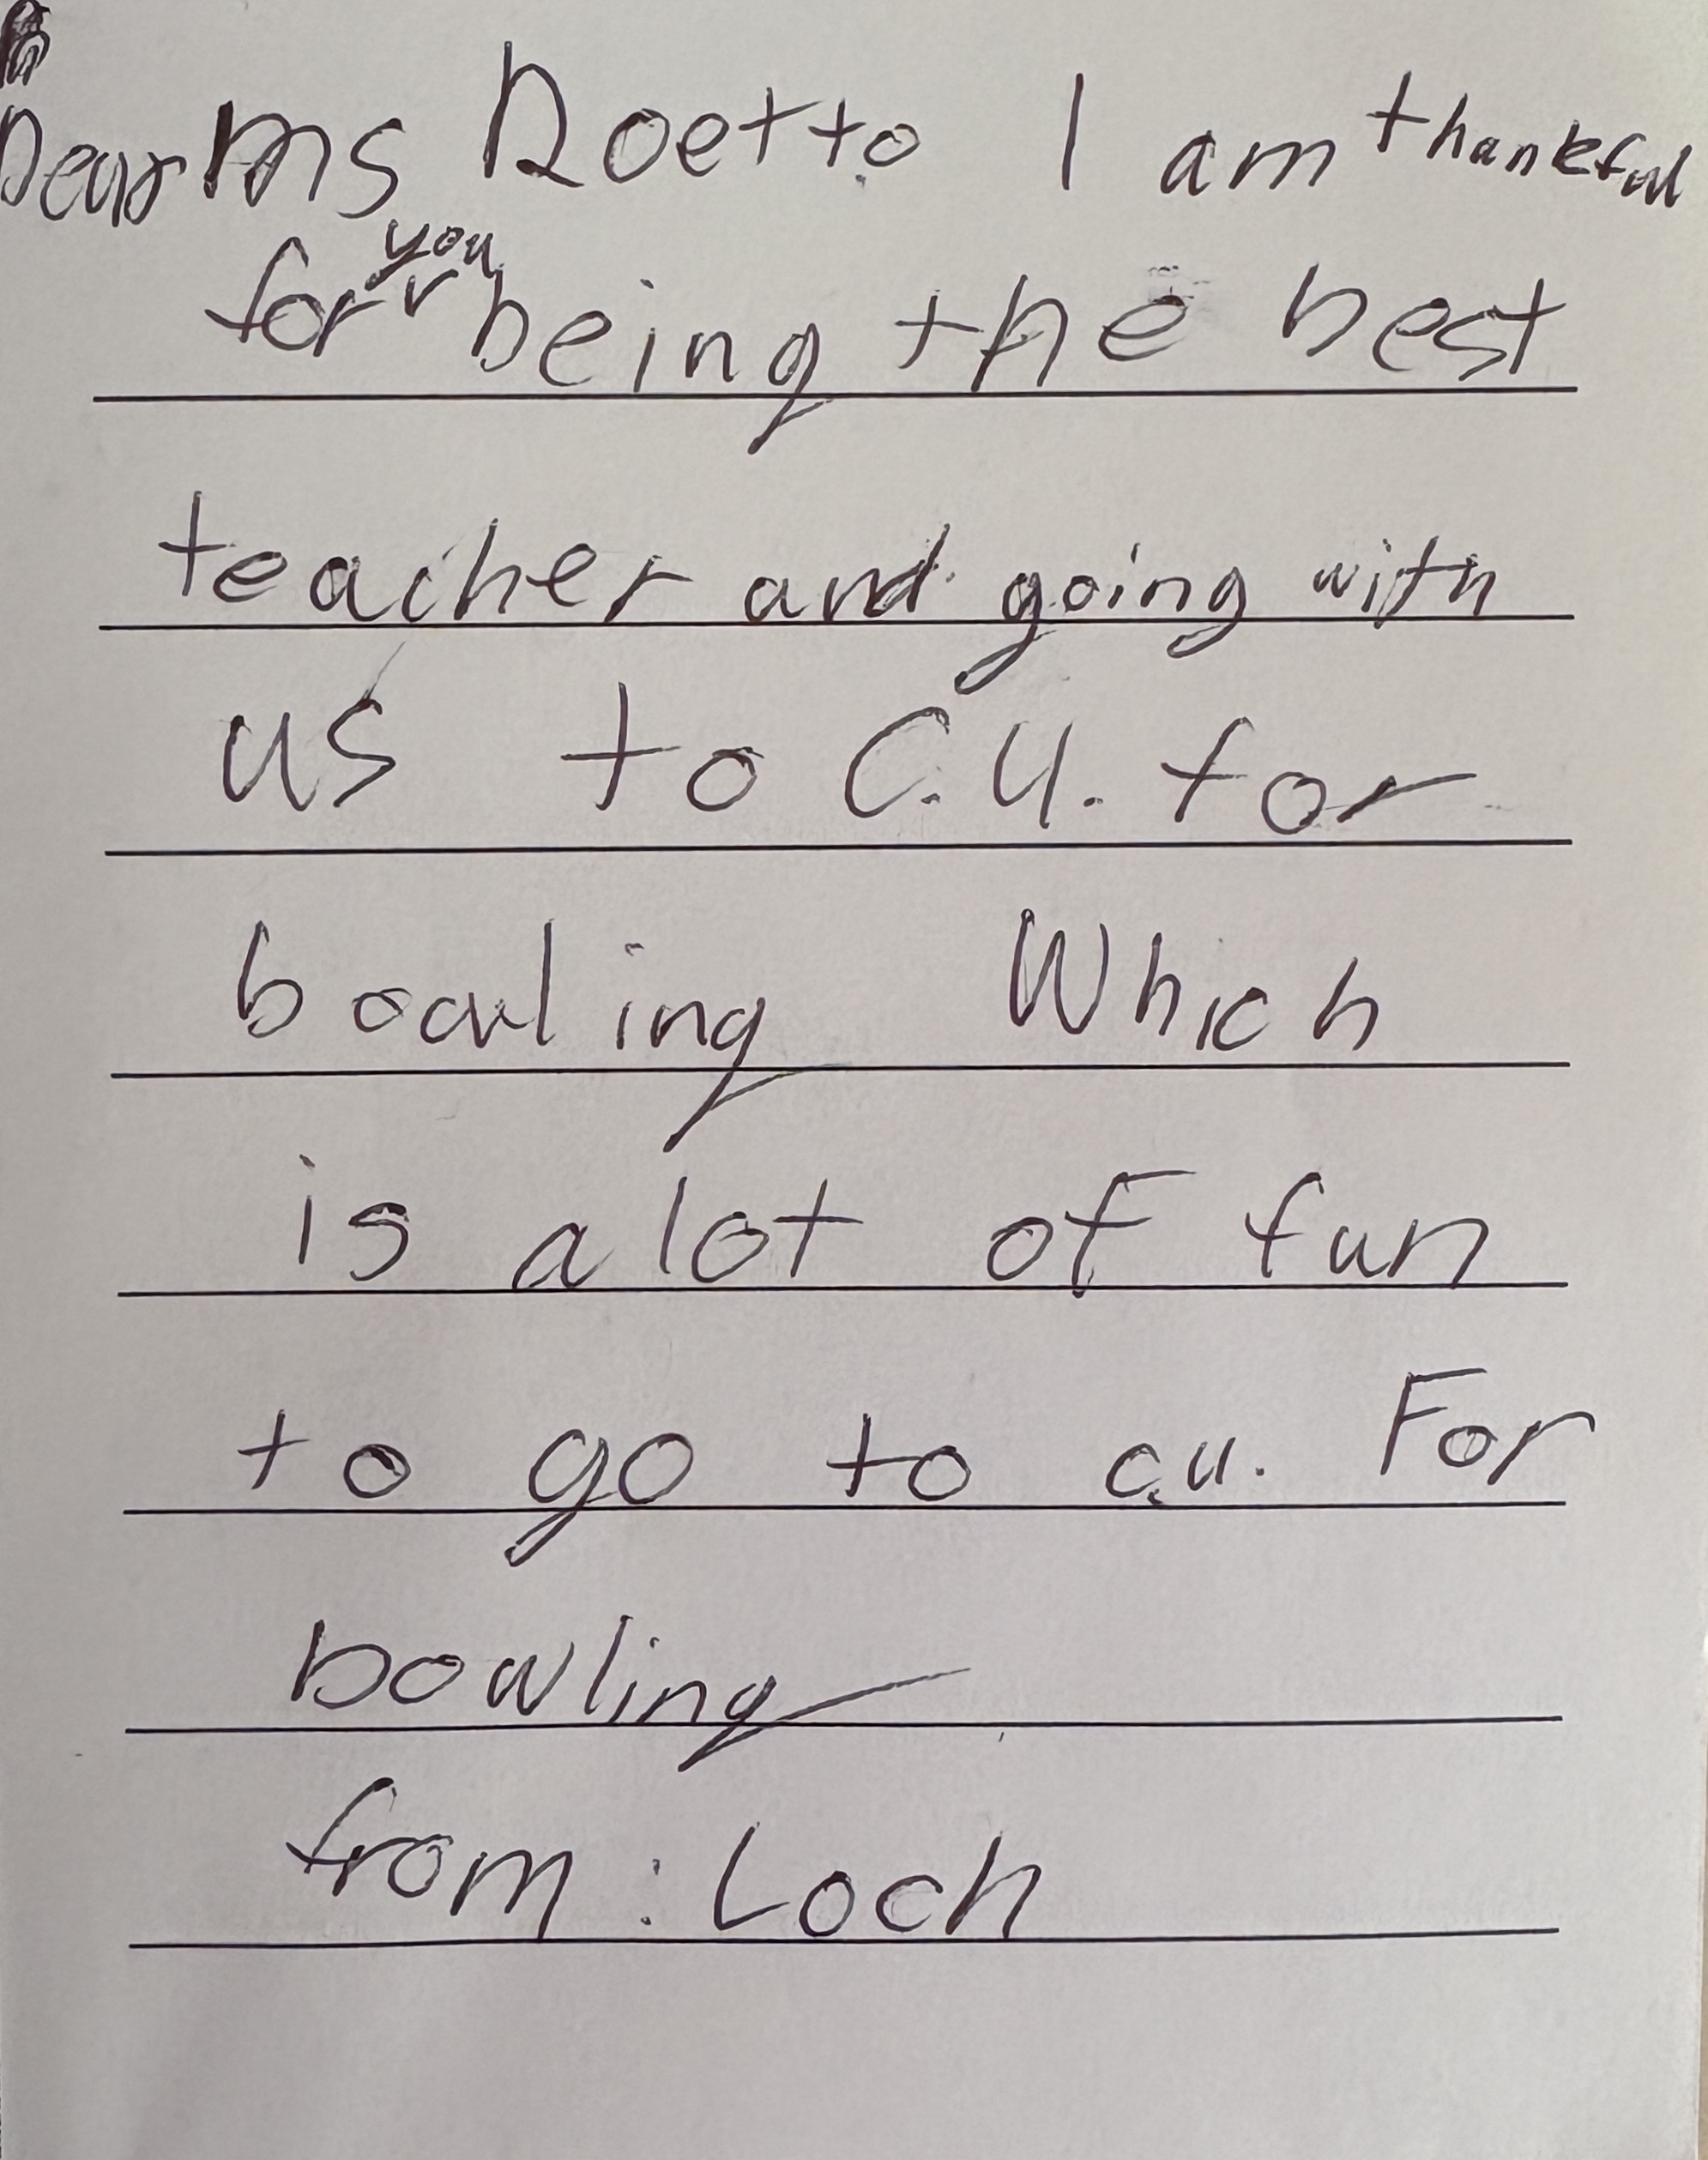 Dear Ms Roetto I am thankful
for you being the best
teacher and going with
us to C.U. for
bowling Which
is a lot of fun
to go to c.u. For
bowling
from: Loch